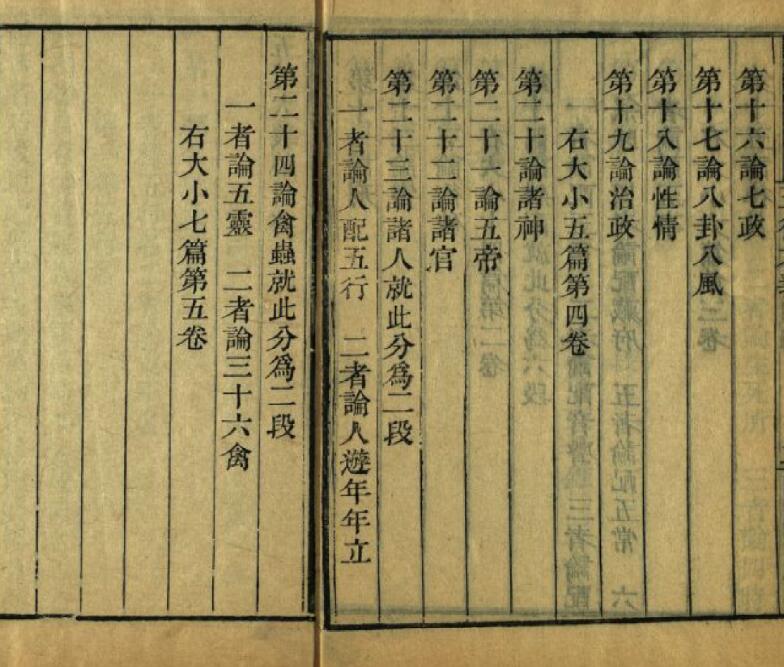 第十六論七政
第十七論八卦八風
第十八論性情
第十九論治政
右大小五篇第四卷
第二十論諸神
第二十一論五帝
第二十二論諸官
第二十三論諸人就此分爲二段
一者論人配五行　二者論人遊年年立
第二十四論禽蟲就此分爲二段
一者論五靈　二者論三十六禽
右大小七篇第五卷